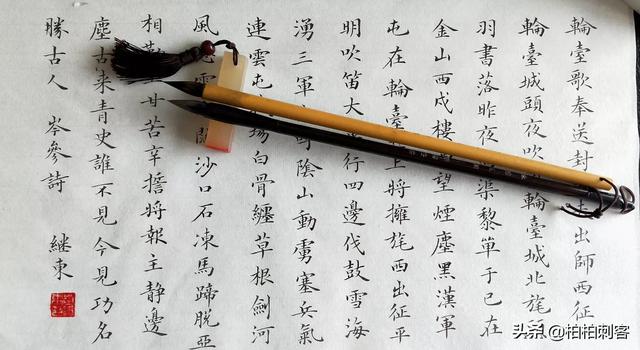 輪臺歌奉送封出師西征
輪臺城頭夜吹輪臺城北旄
羽書落昨夜渠黎單于已在
金山西戍樓望煙塵黑漢軍
屯在輪臺上將擁旄西出征平
明吹笛大行四邊伐鼓雪海
湧三軍陰山動虜塞兵氣
連雲屯場白骨纏草根劍河
風闊沙口石凍馬蹄脫亞
相甘苦辛將報主静邊
塵古来青史誰不見今見功名
勝古人 岑參詩 継東
头条 @柏柏刺客